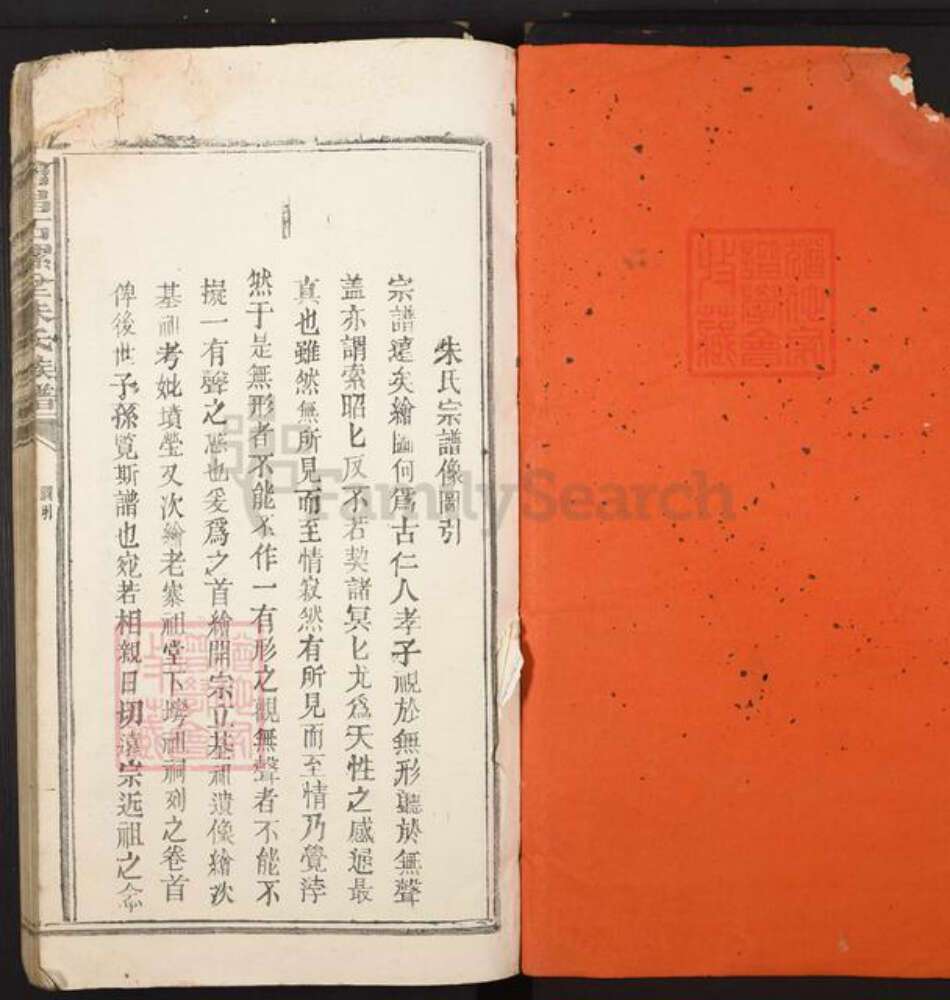 朱氏宗譜像圖引
宗譜遠矣繪圖何爲古仁人孝子視於無形聽於無聲
蓋亦謂索昭匕反不若契諸冥匕尤爲天性之感通最
真也雖然無所見而至情寂然有所見而至情乃覺浡
然于是無形者不能不作一有形之觀無聲者不能不
擬一有聲之思也爰爲之首繪開宗立基祖遺像繪次
基祖考妣墳瑩又次繪老寨祖堂下塝祖祠列之卷首
俾後世子孫覧斯譜也宛若相親日切遠宗近祖之念
朱氏族譜
圖引
FamilySearch